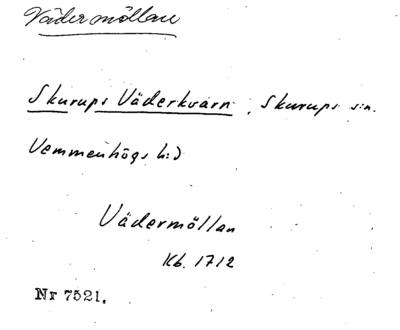 Vädermöllan
Skurups Väderkvarn, Skurups s:n.
Vemmenhögs h:d
Vädermöllan
Kb. 1712
Nr 7521.